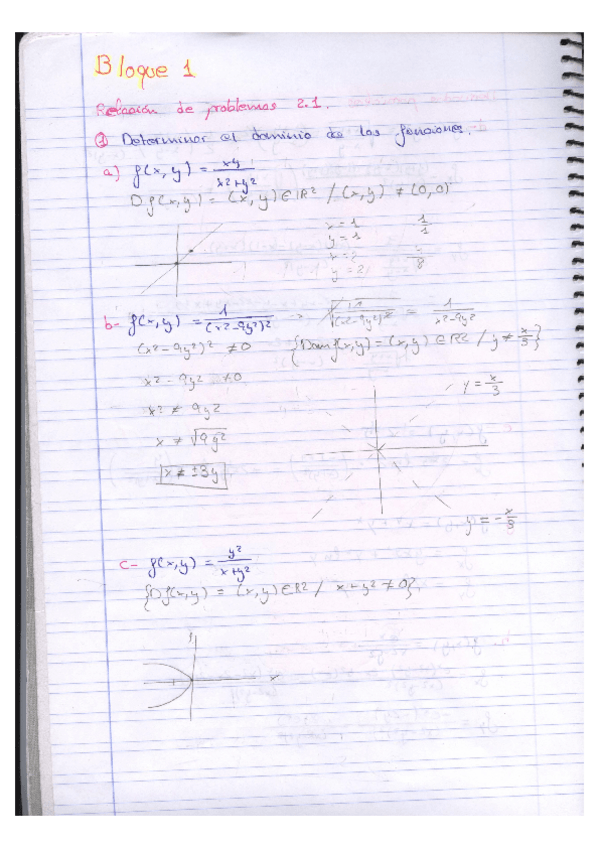 Bloque 1
Relación de problemas 2.1.
① Determinar el dominio de las funciones.
a) f(x,y) = xy / x²+y²
Df(x,y) = (x,y) ∈ IR² / (x,y) ≠ (0,0)
x=1 1
y=1 1
x=2
y=2 8
b- f(x,y) = 1 / (x²-9y²)² → √1 / (x²-9y²)² = 1 / x²-9y²
(x²-9y²)² ≠ 0 {Dom f(x,y) = (x,y) ∈ IR² / y ≠ x/3}
x² - 9y² ≠ 0
y = x/3
x² ≠ 9y²
x ≠ √9y²
x ≠ ±3y
y = -x/3
c- f(x,y) = y² / x+y²
{Df(x,y) = (x,y) ∈ IR² / x+y² ≠ 0}